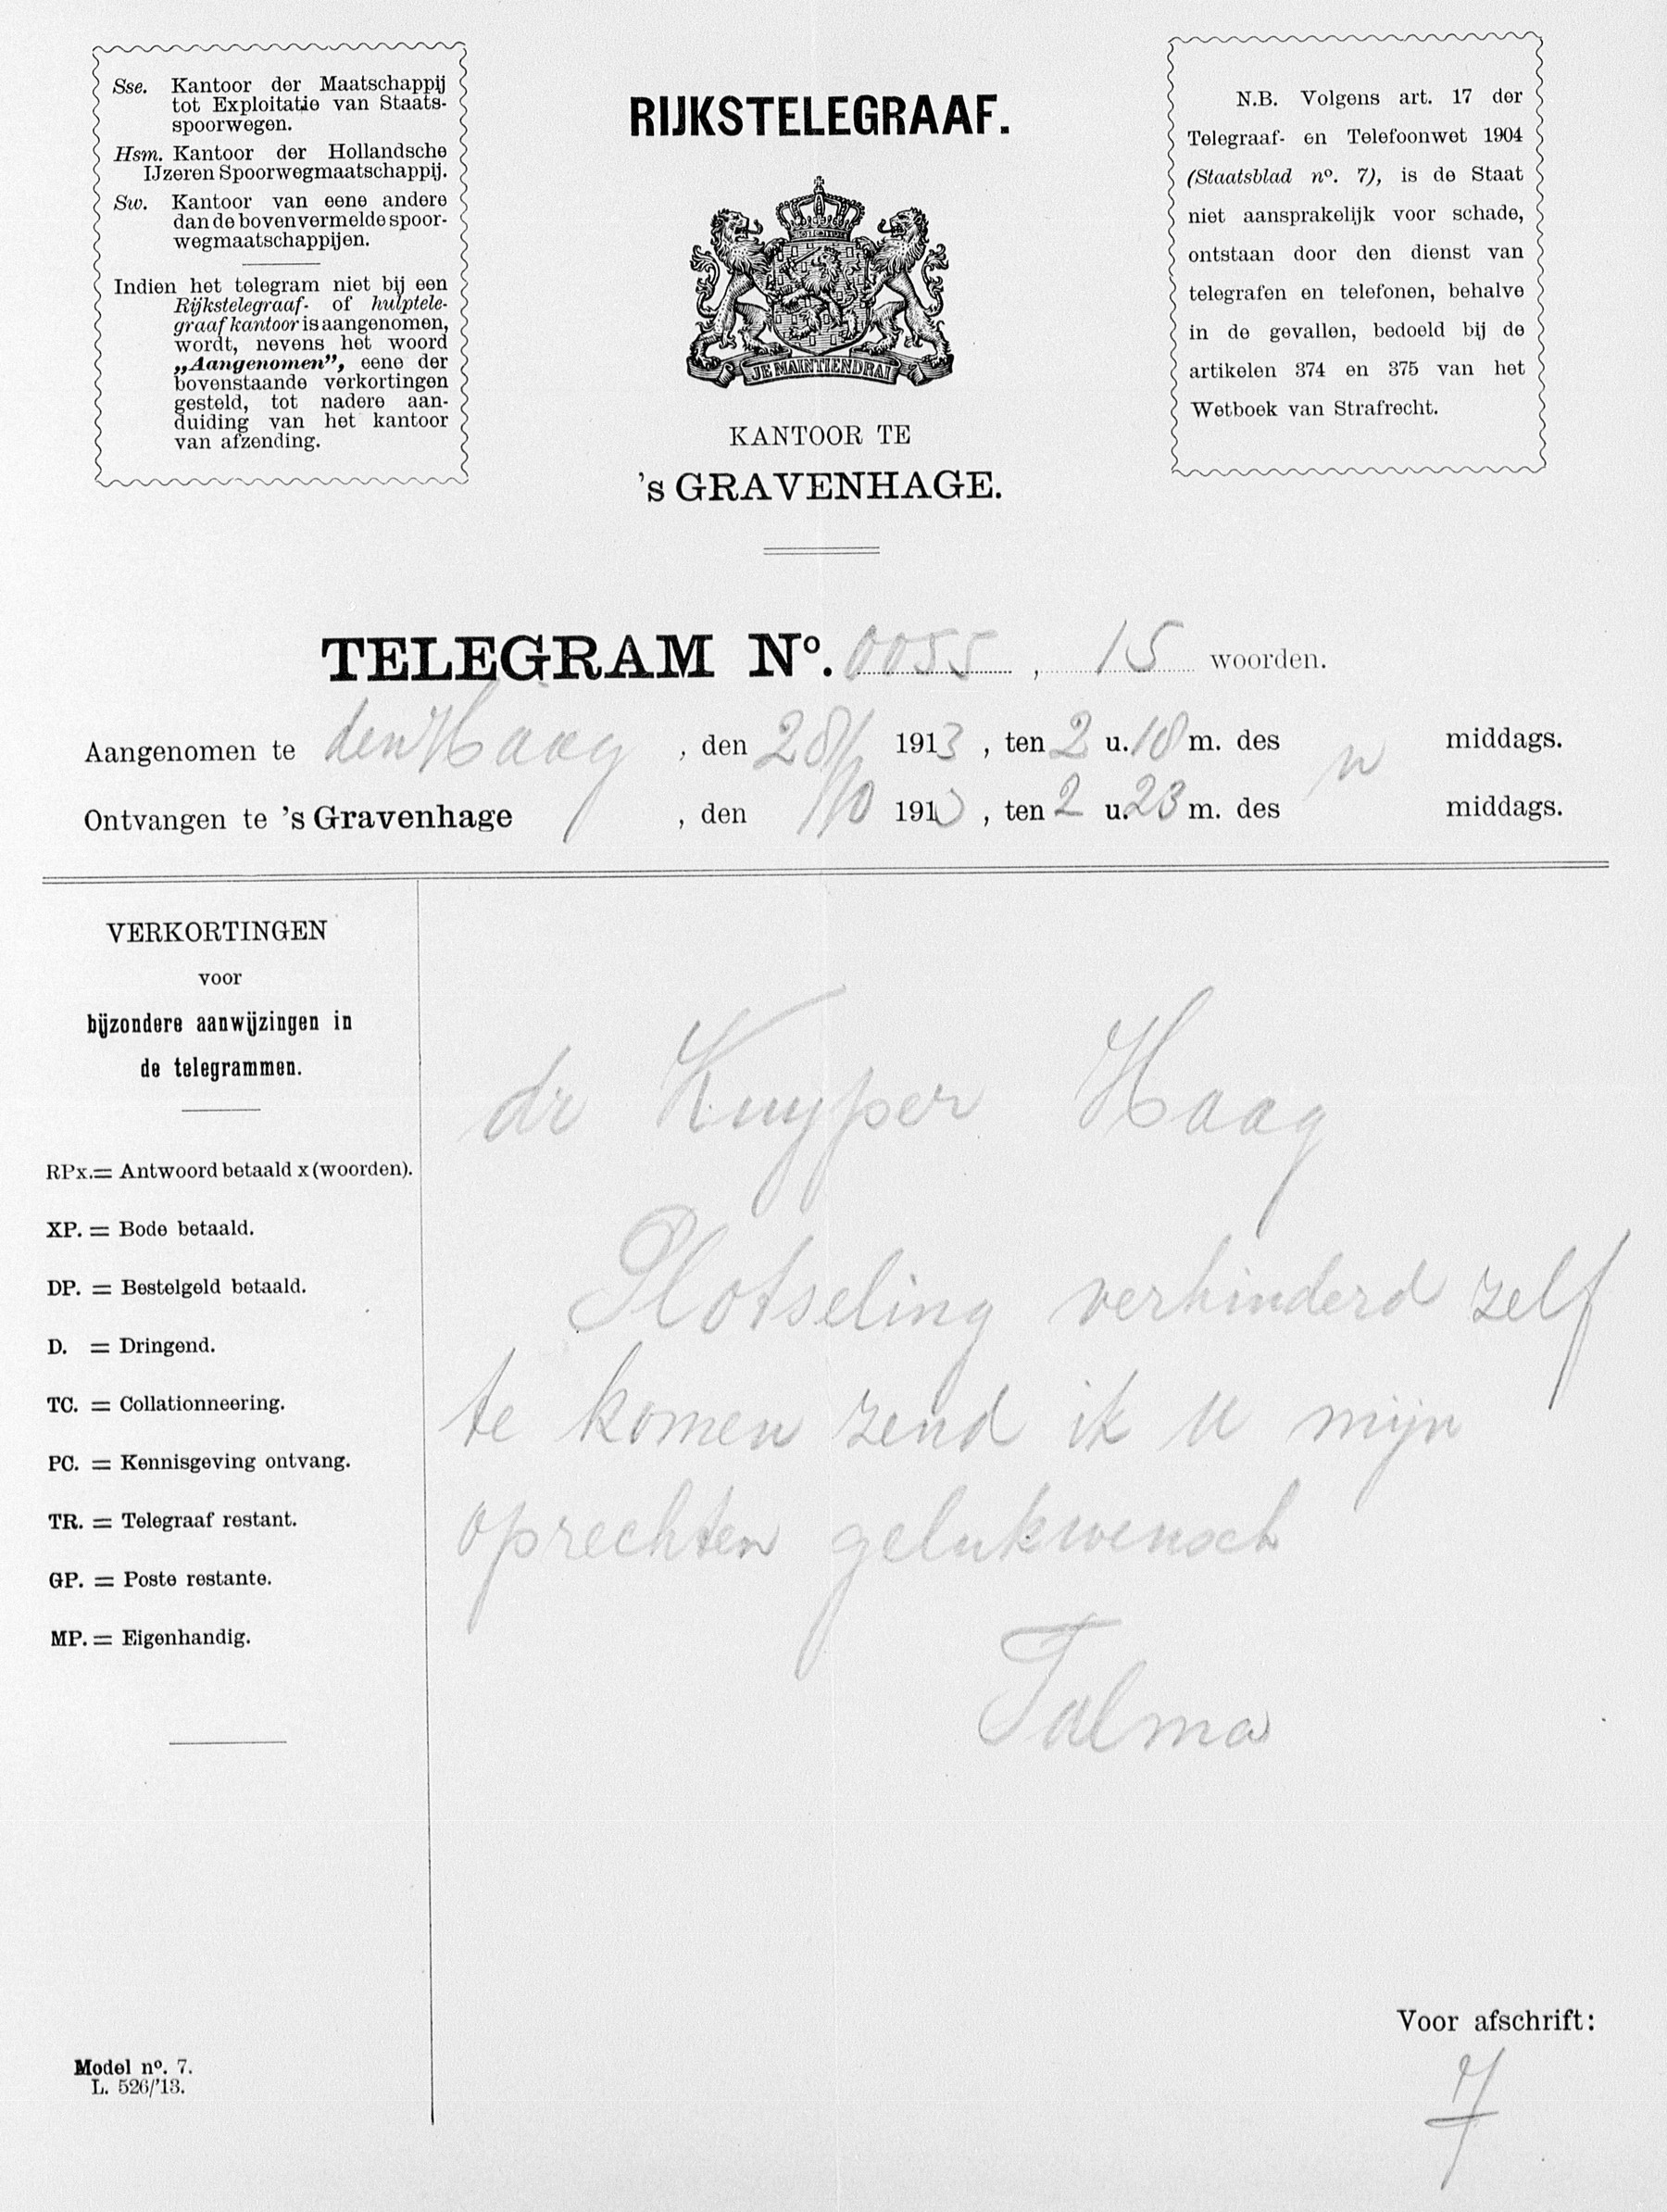 Sse. Kantoor der Maatschappij
tot Exploitatie van Staats-
spoorwegen.
Hsm. Kantoor der Hollandsche
IJzeren Spoorwegmaatschappij.
Sw. Kantoor van eene andere
dan de bovenvermelde spoor-
wegmaatschappijen.
Indien het telegram niet bij een
Rijkstelegraaf- of hulptele-
graafkantoor is aangenomen,
wordt, nevens het woord
„Aangenomen”, eene der
bovenstaande verkortingen
gesteld, tot nadere aan-
duiding van het kantoor
van afzending.
RIJKSTELEGRAAF.
JE MAINTIENDRAI
KANTOOR TE
's GRAVENHAGE.
N.B. Volgens art. 17 der
Telegraaf- en Telefoonwet 1904
(Staatsblad nº. 7), is de Staat
niet aansprakelijk voor schade,
ontstaan door den dienst van
telegrafen en telefonen, behalve
in de gevallen, bedoeld bij de
artikelen 374 en 375 van het
Wetboek van Strafrecht.
TELEGRAM Nº. 0055, 15 woorden.
Aangenomen te den Haag, den 28/ 1913, ten 2 u. 18 m. des n middags.
Ontvangen te 's Gravenhage, den /10 1913, ten 2 u. 23 m. des middags.
VERKORTINGEN
voor
bijzondere aanwijzingen in
de telegrammen.
RPx. = Antwoord betaald x (woorden).
XP. = Bode betaald.
DP. = Bestelgeld betaald.
D. = Dringend.
TC. = Collationneering.
PC. = Kennisgeving ontvang.
TR. = Telegraaf restant.
GP. = Poste restante.
MP. = Eigenhandig.
Model nº. 7.
L. 526/'13.
dr Kuyper Haag
Plotseling verhinderd zelf
te komen zend ik U mijn
oprechten gelukwensch
Talma
Voor afschrift: